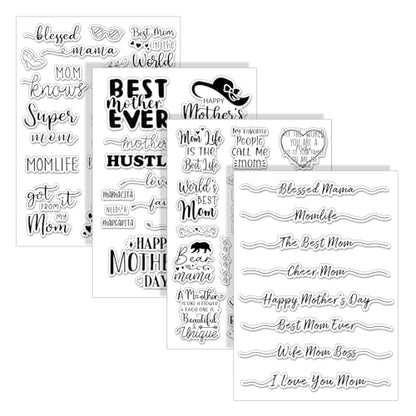 blessed
mama
Best Mom
in the
World
MOM
knows
Super
mom
MOMLIFE
got it
FROM
my
Mom
BEST
Mother
EVER
HAPPY
Mother's
mother
HUSTL
love
MAMACITA
NEEDS A
MARGARITA
HAPPY
MOTHE
DAY
Mom Life
IS THE
Best Life
World's
BEST
Mom
Bear
mama
A Mother
IS LIKE A FLOWER
EACH ONE IS
Beautiful
&
Unique
My Favorite
PEOPLE
CALL ME
mom
TO THE WORLD
YOU ARE A
Blessed Mama
Momlife
The Best Mom
Cheer Mom
Happy Mother's Day
Best Mom Ever
Wife Mom Boss
I Love You Mom